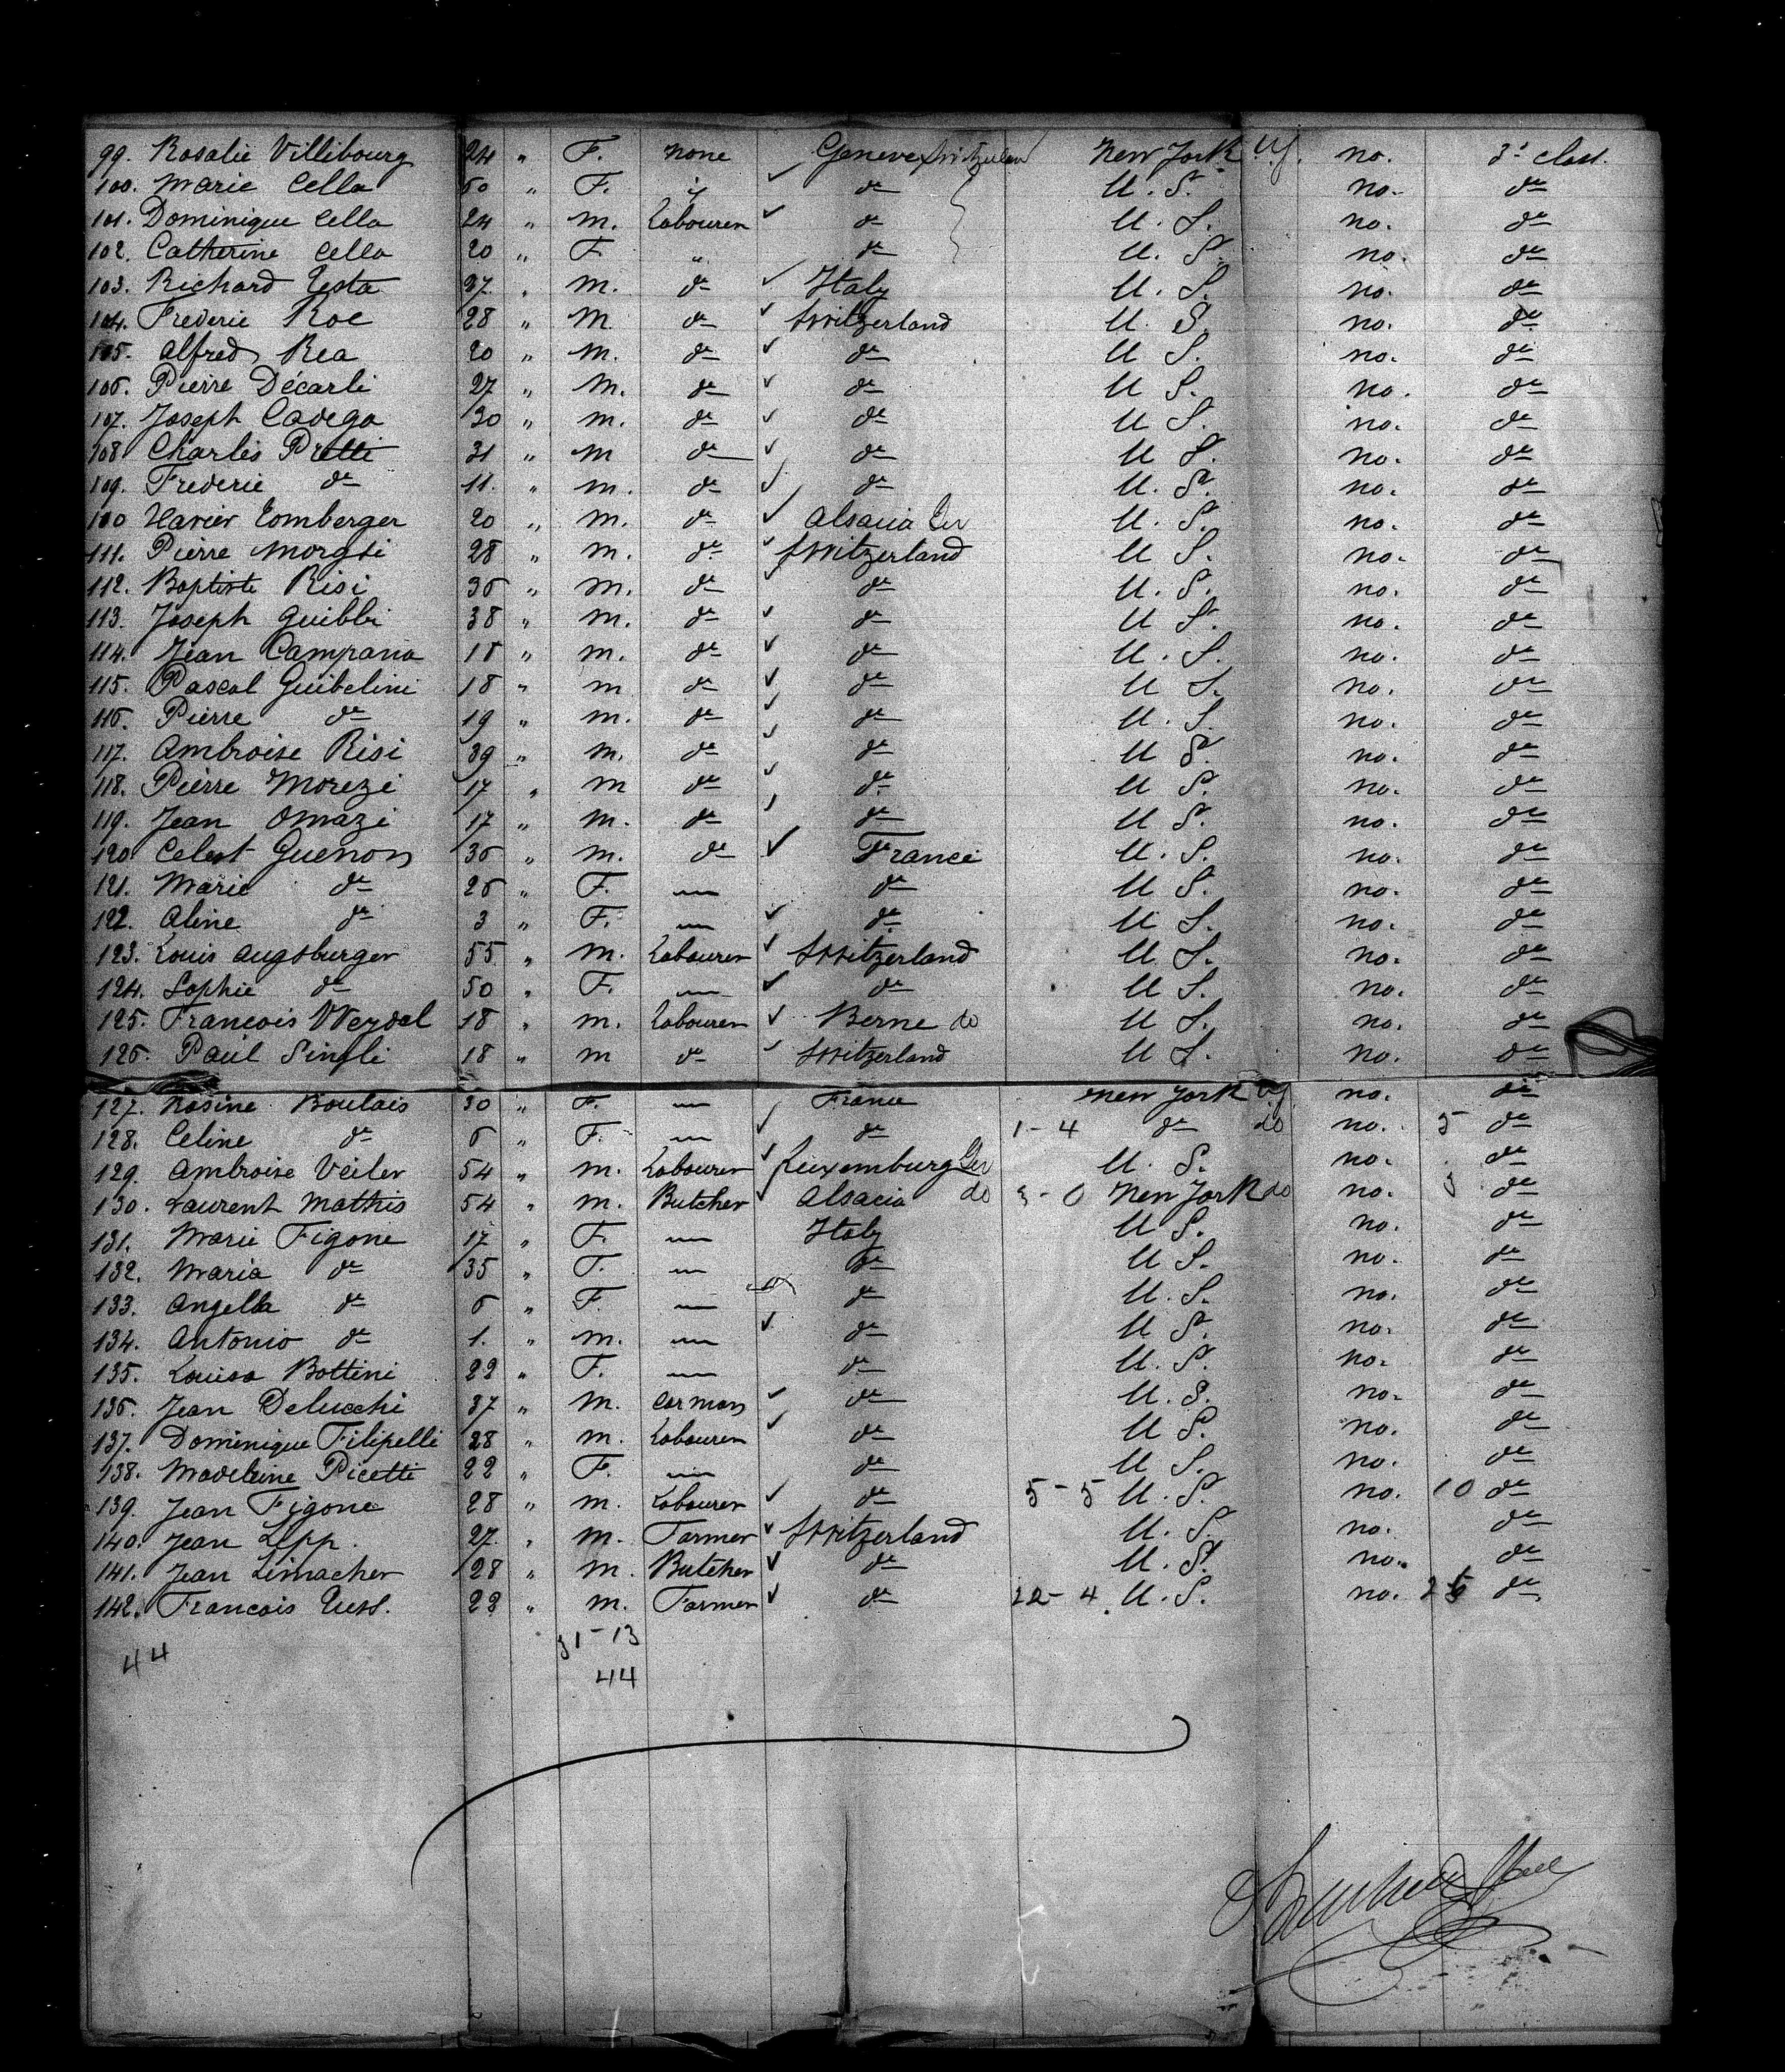 99. Rosalie Villibourg 24 " F. none Geneve Switzerlan New York no. 3d class.
100. Marie Cella 50 " F. do U. S. no. do
101. Dominique Cella 24 " M. Labourer do U. S. no. do
102. Catherine Cella 20 " F. " do U. S. no. do
103. Richard Testa 37 " M. do Italy U. S. no. do
104. Frederic Roe 28 " M. do Switzerland U. S. no. do
105. Alfred Rea 20 " M. do do U S. no. do
106. Pierre Décarli 27 " M. do do U S. no. do
107. Joseph Cavega 30 " M. do do U S. no. do
108 Charles Pretti 31 " M do do U S. no. do
109. Frederic do 11. " M. do do U. S. no. do
110 Xavier Eomberger 20 " M. do Alsacia Ger U. S. no. do
111. Pierre Morgti 28 " M. do Switzerland U S. no. do
112. Baptiste Risi 36 " M. do do U. S. no. do
113. Joseph Guibbi 38 " M. do do U S. no. do
114. Jean Campana 18 " M. do do U. S. no. do
115. Pascal Guibelini 18 " M do do U S. no. do
116. Pierre do 19 " M. do do U. S. no. do
117. Ambroise Risi 39 " M. do do U S. no. do
118. Pierre Morezi 17 " M do do U S. no. do
119. Jean Omazi 17 " M. do do U S. no. do
120. Celest Guenon 36 " M. do France U. S. no. do
121. Marie do 26 " F. — do U S. no. do
122. Aline do 3 " F. — do U S. no. do
123. Louis Augsburger 55 " M. Labourer Switzerland U. S. no. do
124. Sophie do 50 " F. — do U S. no. do
125. Francois Weydel 18 " M. Labourer Berne do U S. no. do
126. Paul Singli 18 " M do Switzerland U S. no. do
127. Rosine Boulais 30 " F. — France New York no. do
128. Celine do 6 " F. — do 1-4 do do no. 5 do
129. Ambroise Veiler 54 " M. Labourer Luxemburg Ger U. S. no. do
130. Laurent Mathis 54 " M. Butcher Alsacia do 3-0 New York do no. 3 do
131. Marie Figone 17 " F. — Italy U S. no. do
132. Maria do 35 " F. — do U S. no. do
133. Angella do 6 " F. — do U. S. no. do
134. Antonio do 1. " M. — do U S. no. do
135. Louisa Bottini 22 " F. — do U. S. no. do
136. Jean Delucchi 37 " M. Carman do U. S. no. do
137. Dominique Filipelli 28 " M. Labourer do U S. no. do
138. Madeleine Picetti 22 " F. — do U S. no. do
139. Jean Figone 28 " M. Labourer do 5-5 U. S. no. 10 do
140. Jean Lepp. 27. " M. Farmer Switzerland U. S. no. do
141. Jean Limacher 28 " M. Butcher do U. S. no. do
142. Francois 22 " M. Farmer do 22-4 U. S. no. 26 do
44 31-13
44